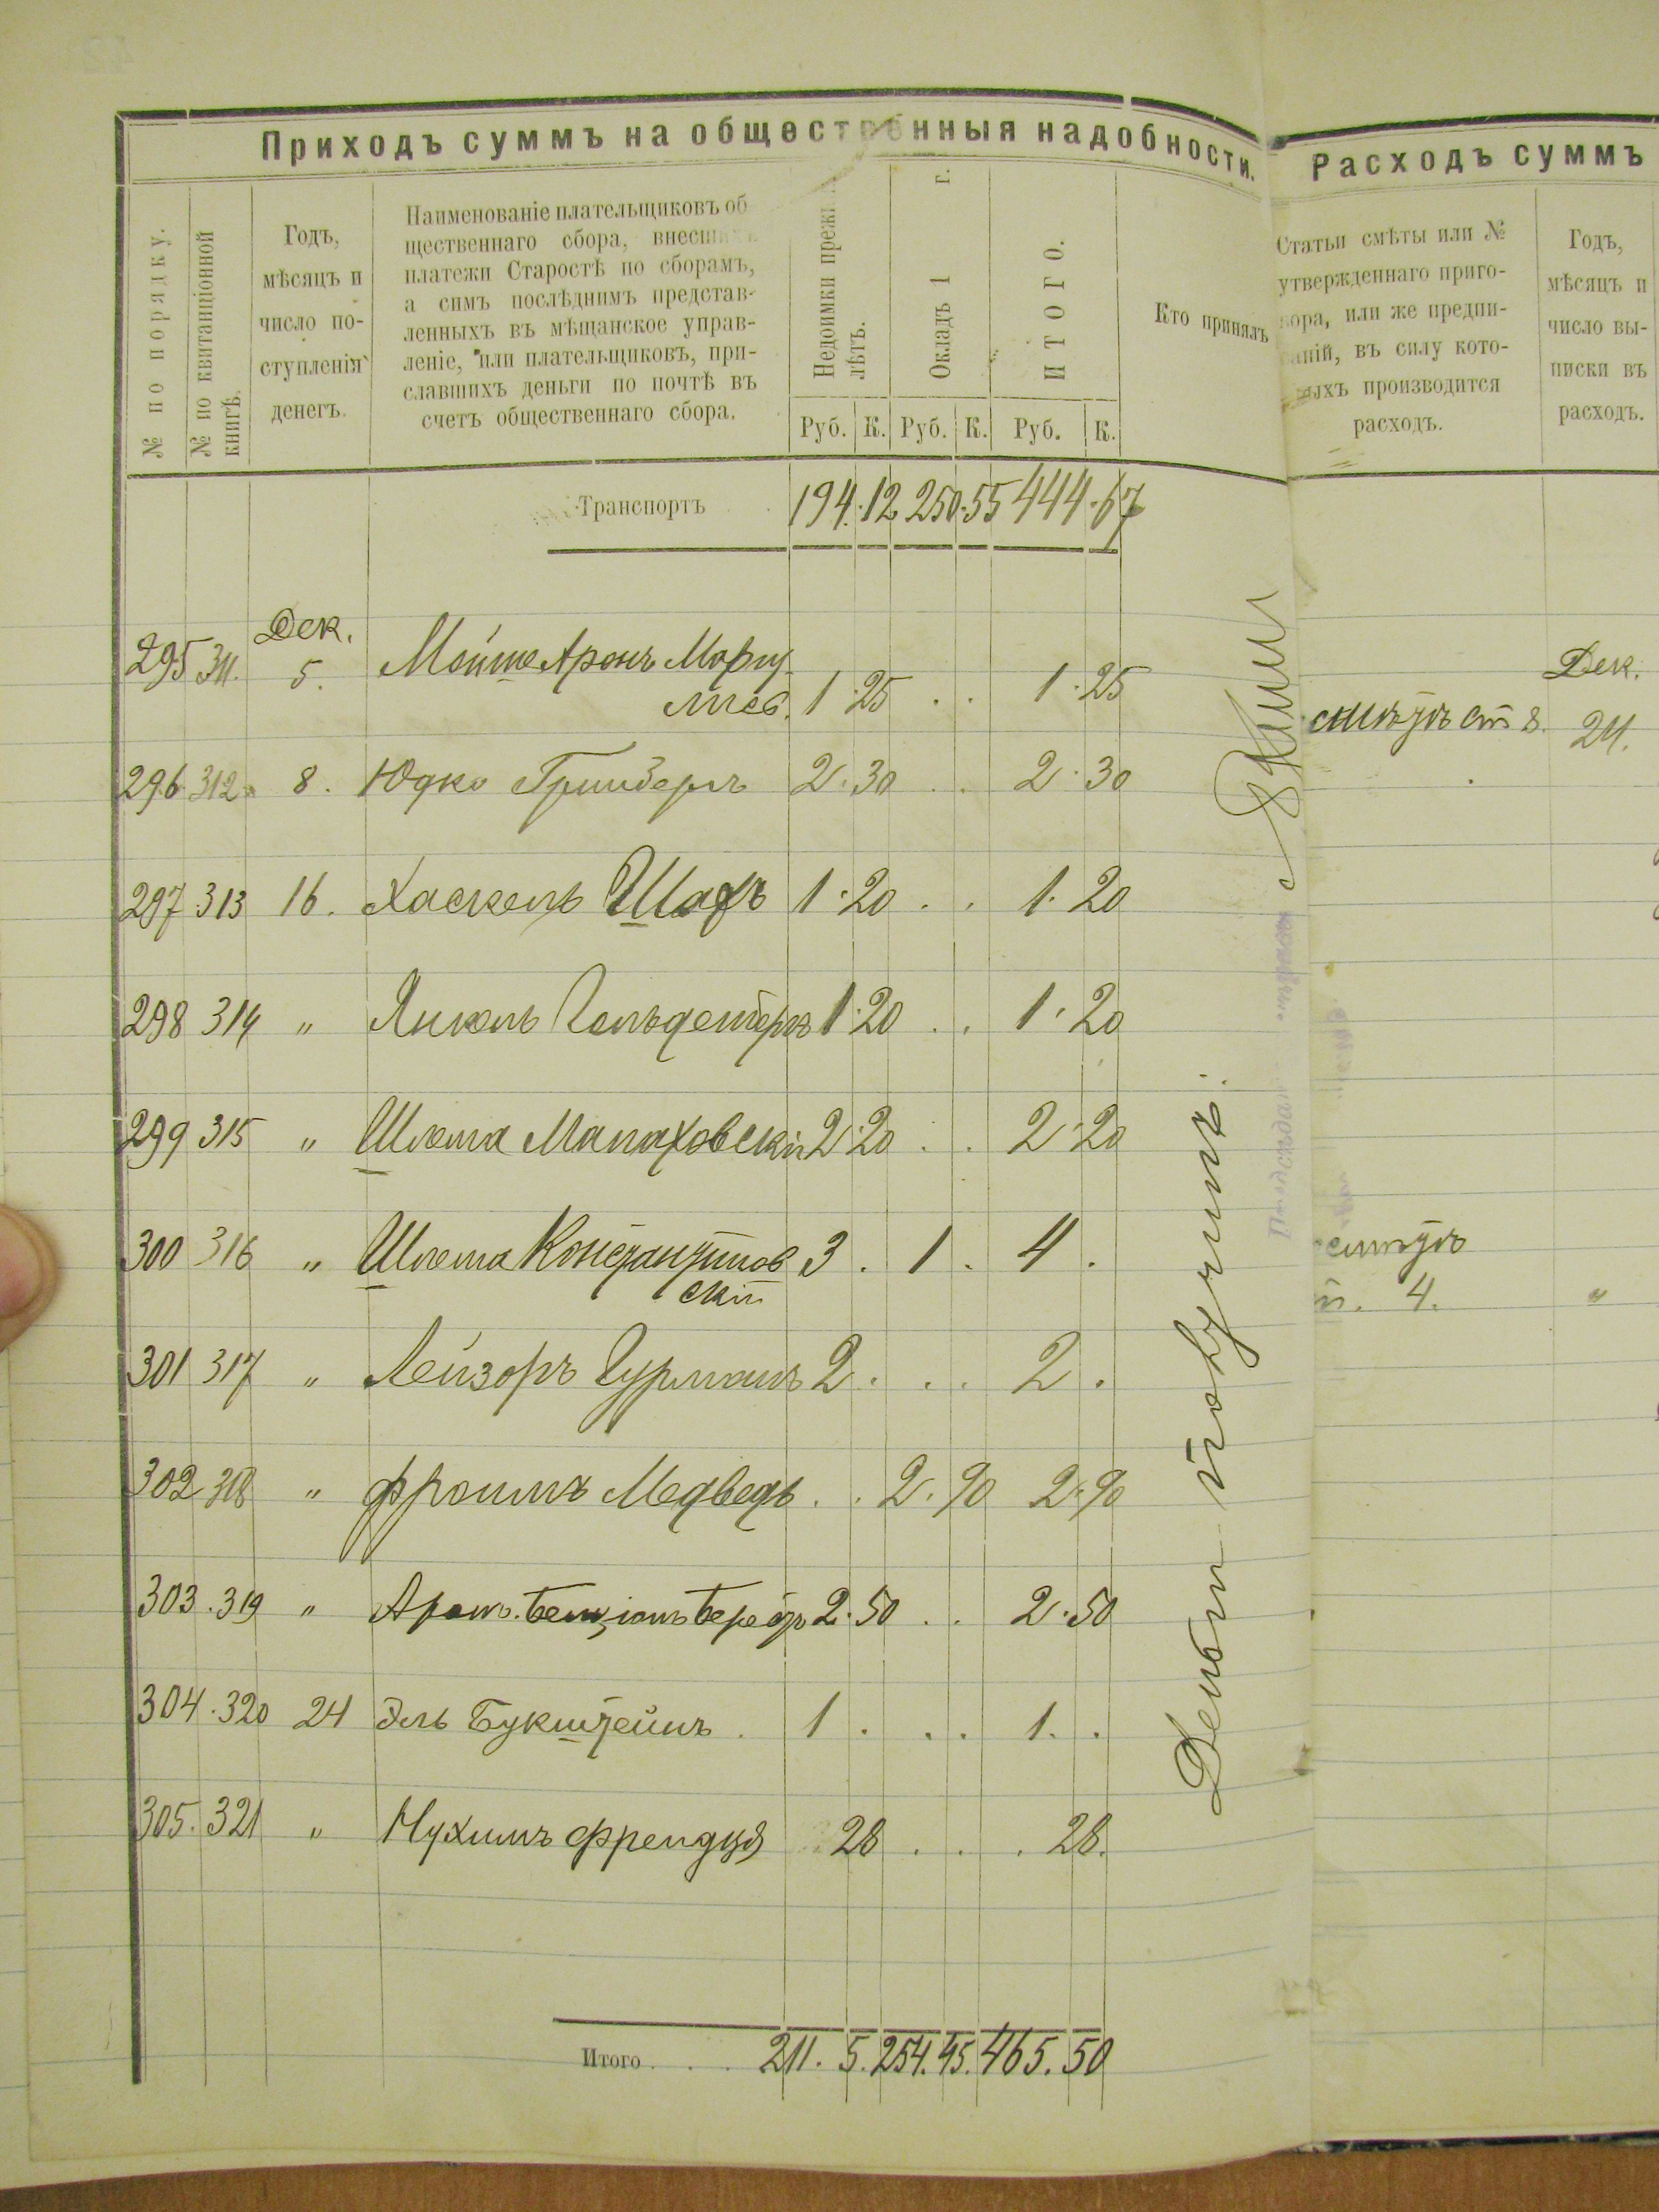 Приходъ суммъ на общественныя надобности.
№ по порядку.
№ по квитанціонной
книгѣ.
Годъ,
мѣсяцъ и
число по-
ступленія
денегъ.
Наименованіе плательщиковъ об
щественнаго сбора, внесшихъ
платежи Старостѣ по сборамъ,
а симъ послѣднимъ представ-
ленныхъ въ мѣщанское управ-
леніе, или плательщиковъ, при-
славшихъ деньги по почтѣ въ
счетъ общественнаго сбора.
Недоимки прежн.
лѣтъ.
Окладъ 1 г.
ИТОГО.
Кто принялъ
Руб. К. Руб. К. Руб. К.
Транспортъ 194. 12 250. 55 444. 67
Дек.
295 311. 5. Мойше Аронъ Маргу
лисъ. 1. 25 . . 1. 25
296 312 8. Юдко Гринбергъ 2. 30 . . 2. 30
297 313 16. Хаскель Шафъ 1. 20 . . 1. 20
298 314 " Янкель Гольденбергъ 1. 20 . . 1. 20
299 315 " Шлема Малаховскій 2. 20 . . 2. 20
300 316 " Шлема Константинов
скій 3 . 1 . 4 .
301 317 " Лейзоръ Гурманъ 2 . . . 2 .
302 318 " Фроимъ Медведь . . 2. 90 2. 90
303. 319 " Аронъ Бенціонъ 2. 50 . . 2. 50
304. 320 24 Эль Букштейнъ . 1 . . . 1. .
305. 321 " Нухимъ 28 . . . 28.
Итого . . . 211. 5. 254. 45. 465. 50
Деньги получилъ:
Расходъ суммъ
Статьи смѣты или №
утвержденнаго приго-
вора, или же предпи-
саній, въ силу кото-
рыхъ производится
расходъ.
Годъ,
мѣсяцъ и
число вы-
писки въ
расходъ.
Дек.
ст 8. 24.
4. "